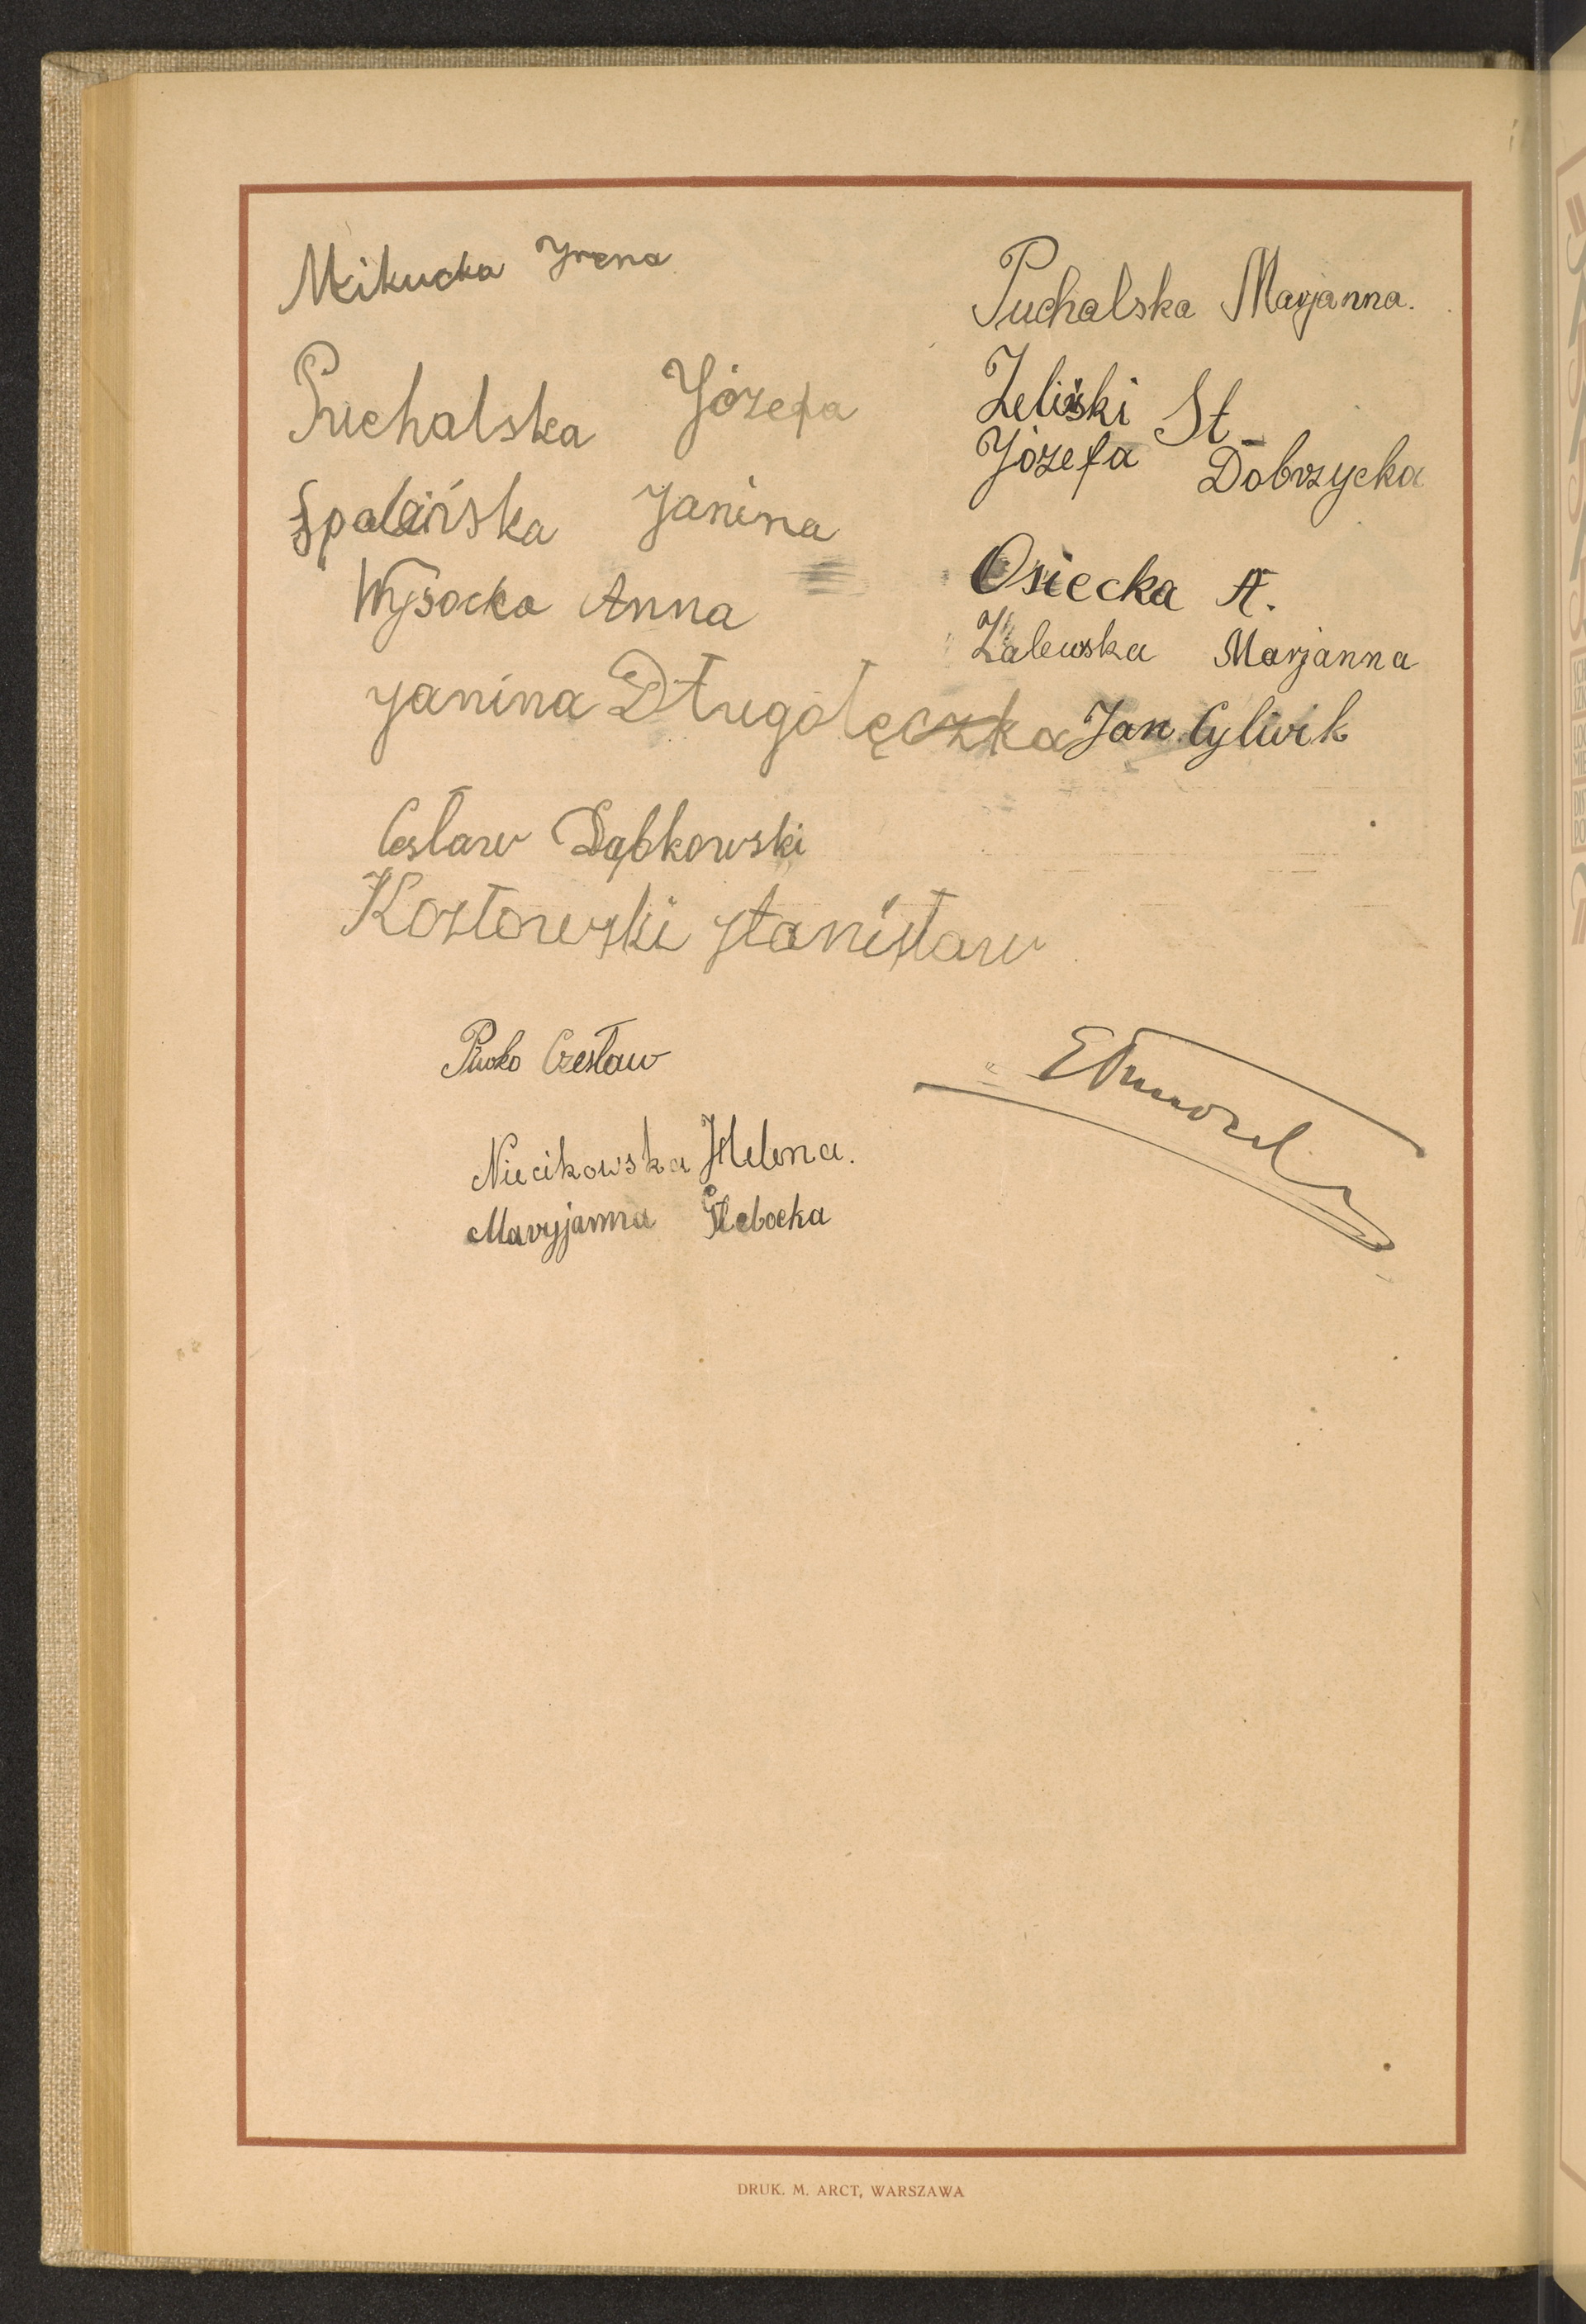 Mikucka Yrena
Puchalska Józefa
Spalińska Janina
Wysocka Anna
Janina Długołęczka
Cesław Dąbkowski
Kozłowski Stanisław
Czesław
Niecikowska Helena.
Maryjanna Głebocka
Puchalska Marjanna.
Zeliński St
Józefa Dobrzycka
Osiecka A.
Zalewska Marjanna
Jan Cyliwik
DRUK. M. ARCT, WARSZAWA